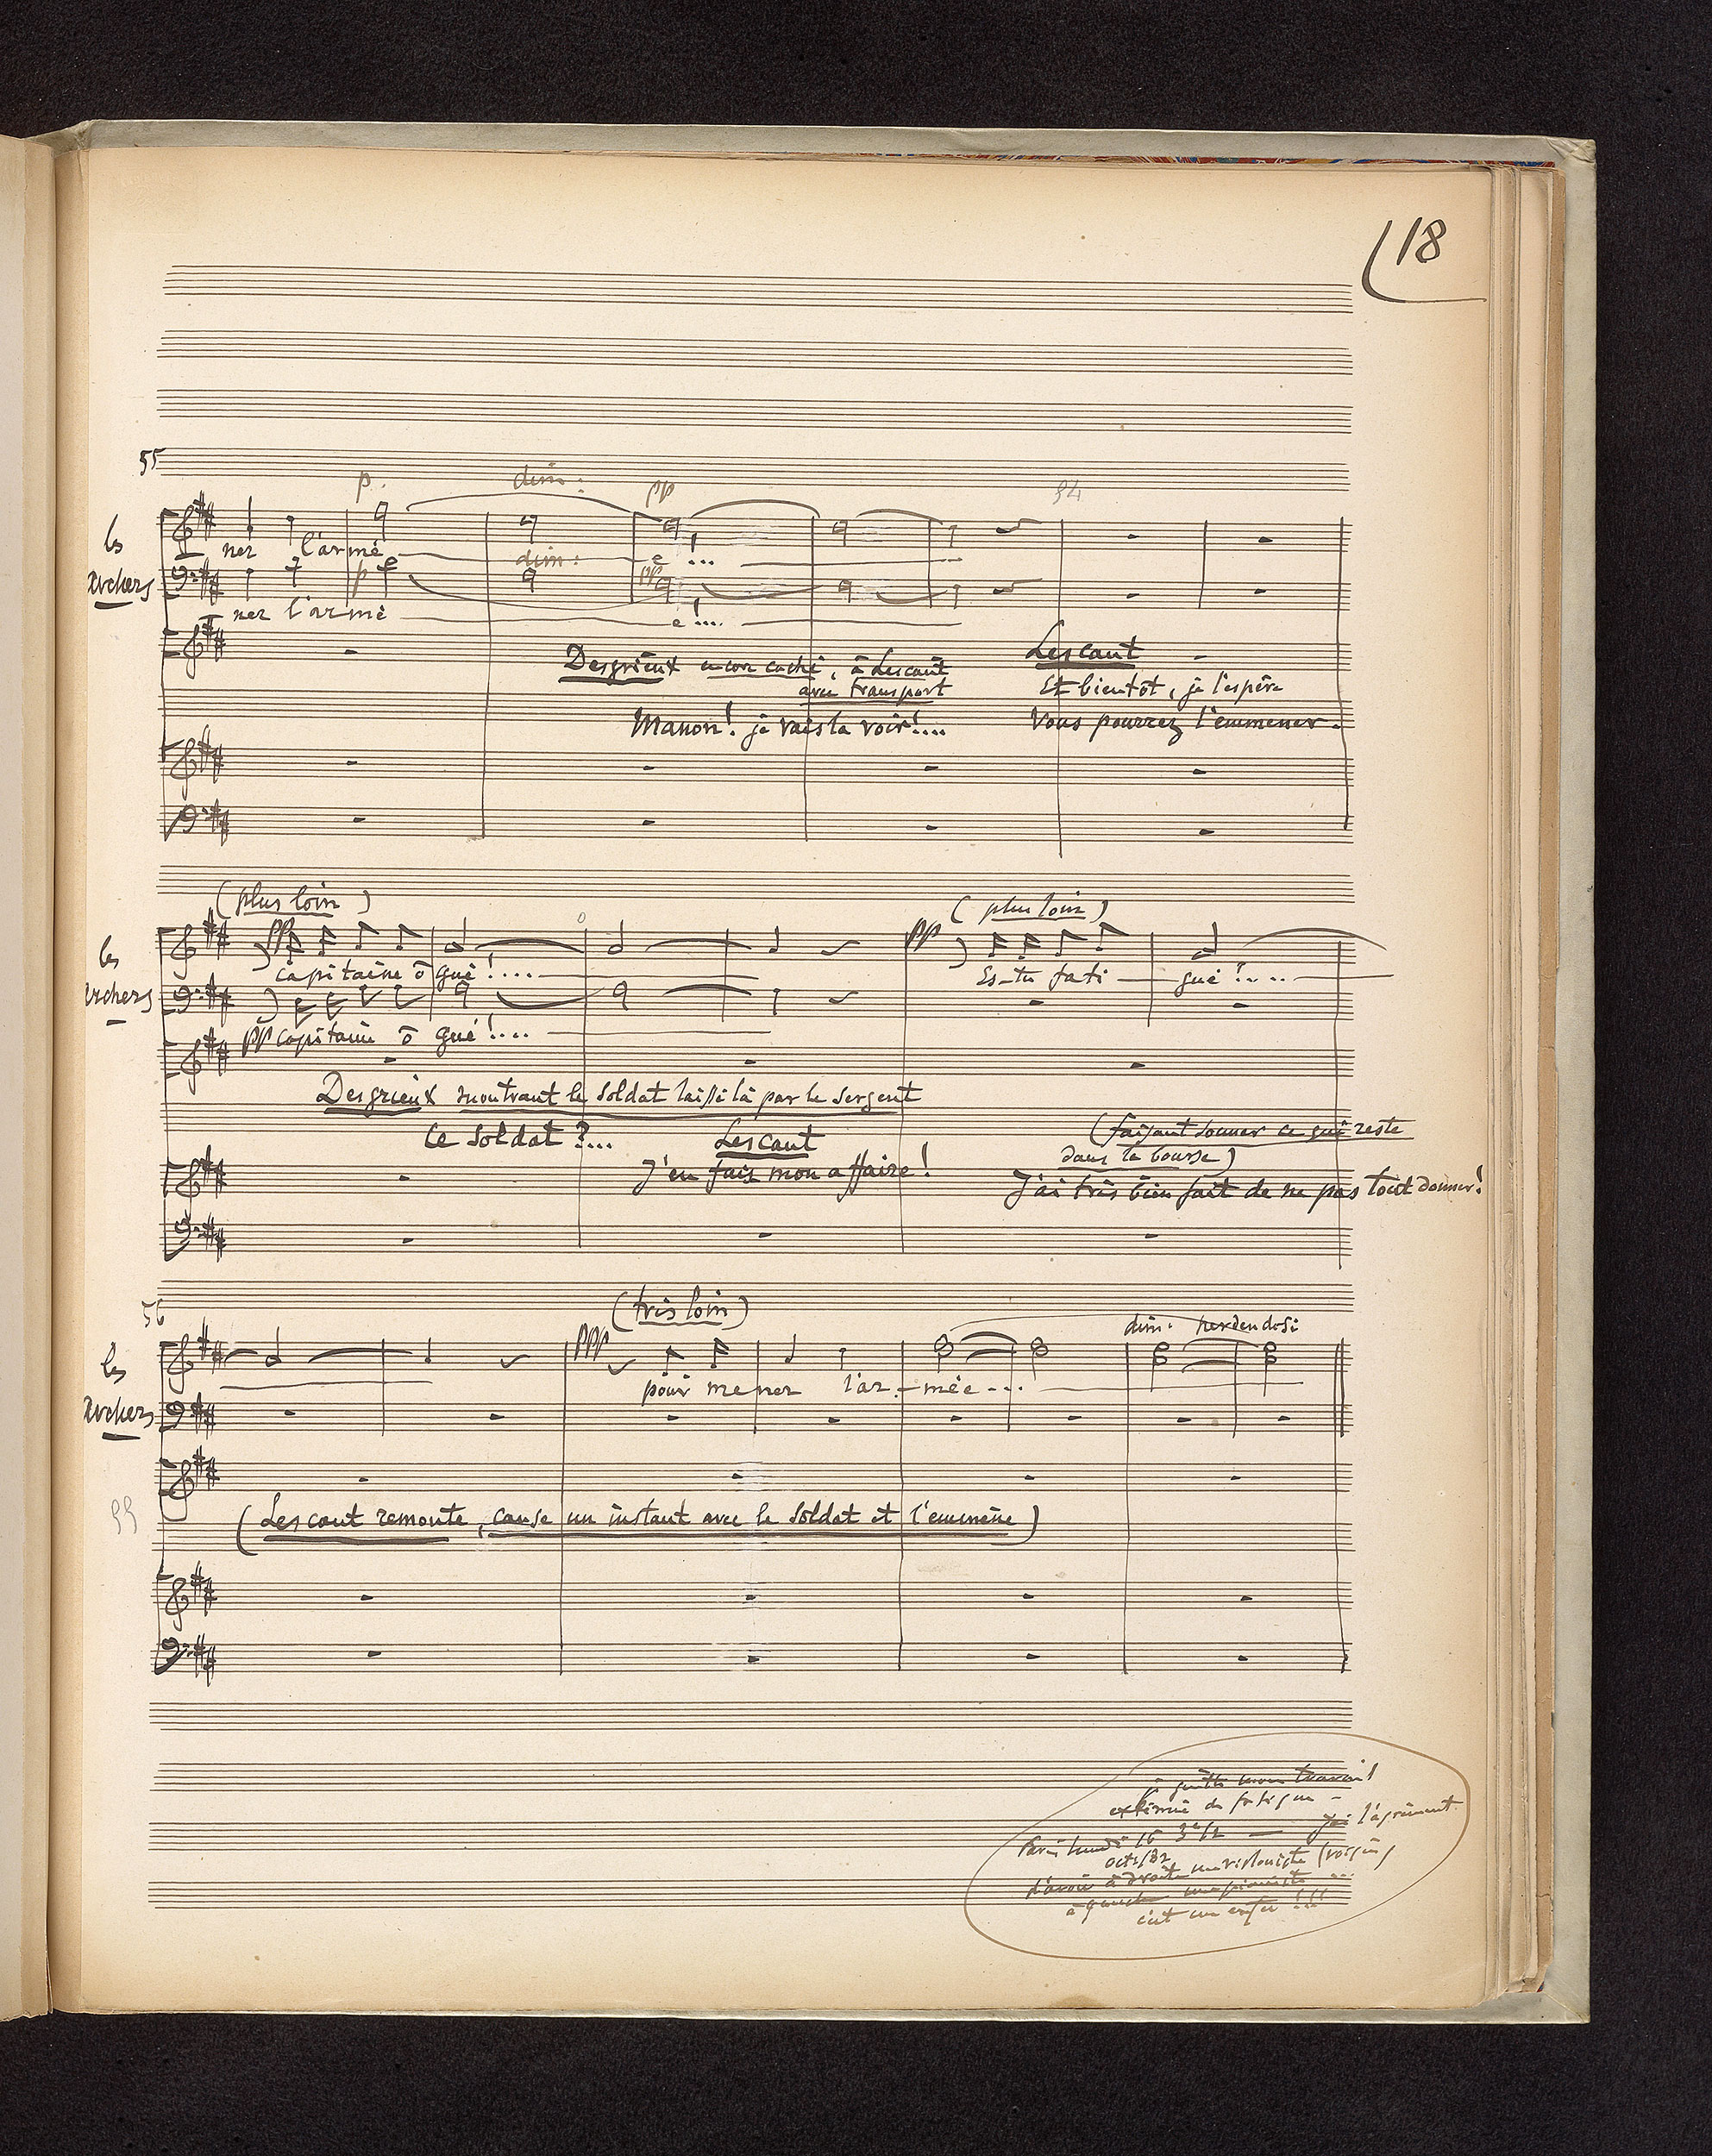 18
55
p. dim: pp
54
les
Archers
ner l'armé e!...
p dim: pp
ner l'armé e!...
Desgrieux encor caché, à Lescaut
avec transport
Manon! je vais la voir!....
Lescaut
Et bientôt, je l'espère
Vous pourrez l'emmener.
(plus loin)
(plus loin)
les
Archers
pp
pp
Capitaine ô gué!....
Es-tu fati gué?....
pp Capitaine ô gué!....
Desgrieux montrant le soldat laissé là par le sergent
Ce soldat?...
Lescaut
J'en fais mon affaire!
(faisant sonner ce qui reste
dans la bourse)
J'ai très bien fait de ne pas tout donner!
56
(très loin)
dim. perdendosi
les
Archers
ppp
pour mener l'ar-mée...
55
(Lescaut remonte, cause un instant avec le soldat et l'emmène)
je quitte mon travail
exténué de fatigue -
Paris lundi 16 — j'ai l'agrément
oct/82
d'avoir à droite un violoniste (voisin)
à gauche une pianiste ...
c'est un enfer!!!